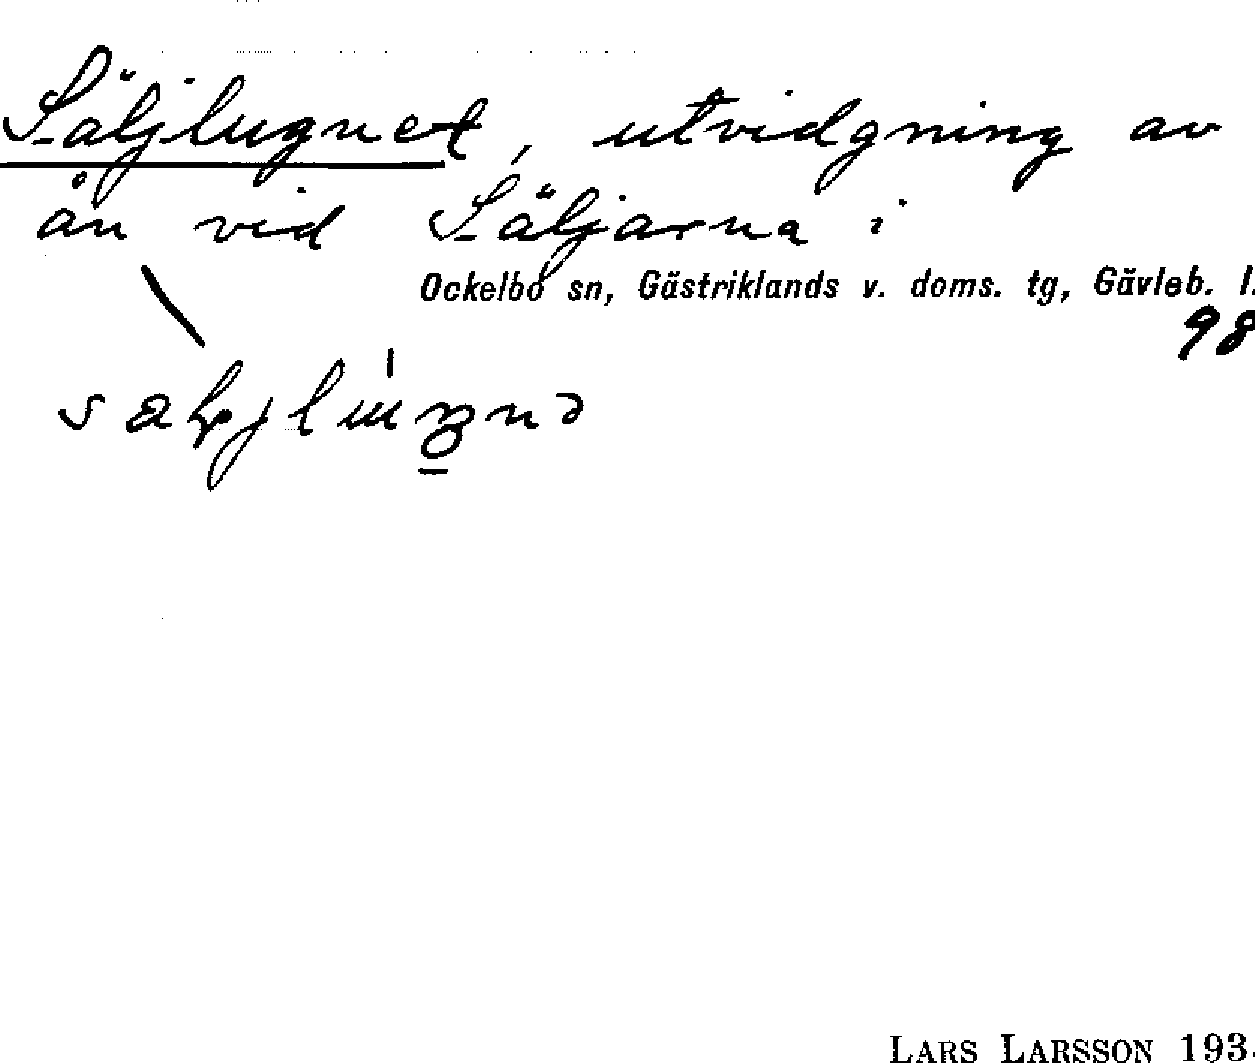 Säljlugnet, utvidgning av
ån vid Säljarna i
Ockelbo sn, Gästriklands v. doms. tg, Gävleb. l.
98
LARS LARSSON 193